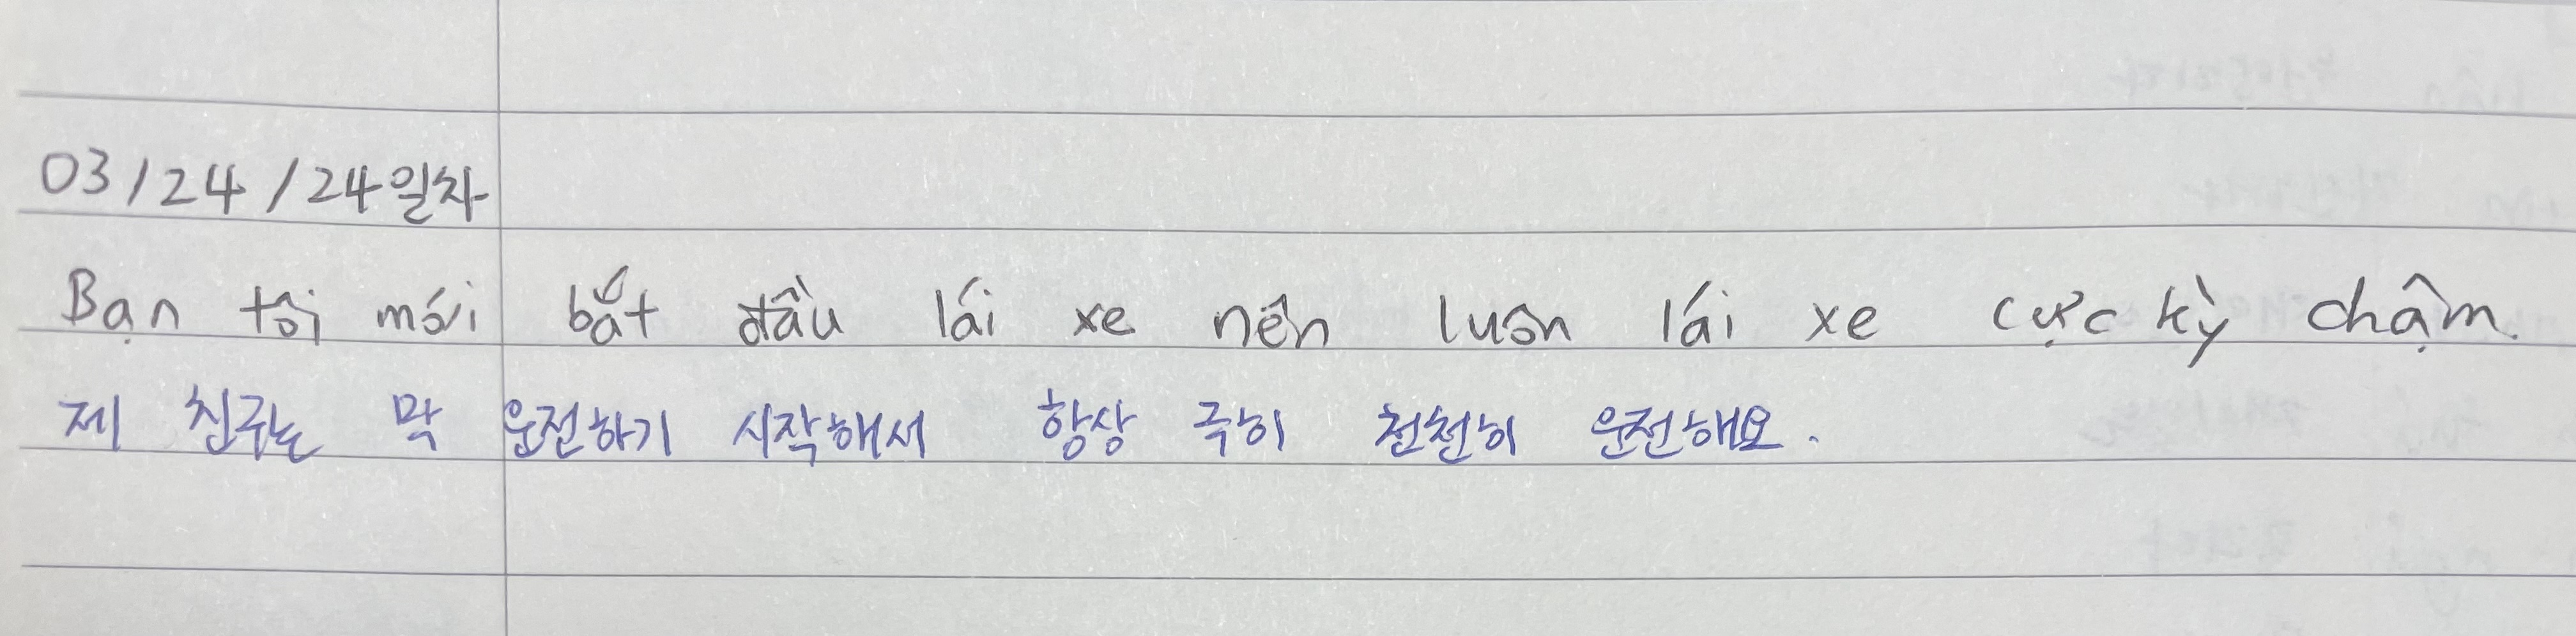 03/24/24일차
Bạn tôi mới bắt đầu lái xe nên luôn lái xe cực kỳ chậm.
제 친구는 막 운전하기 시작해서 항상 극히 천천히 운전해요.